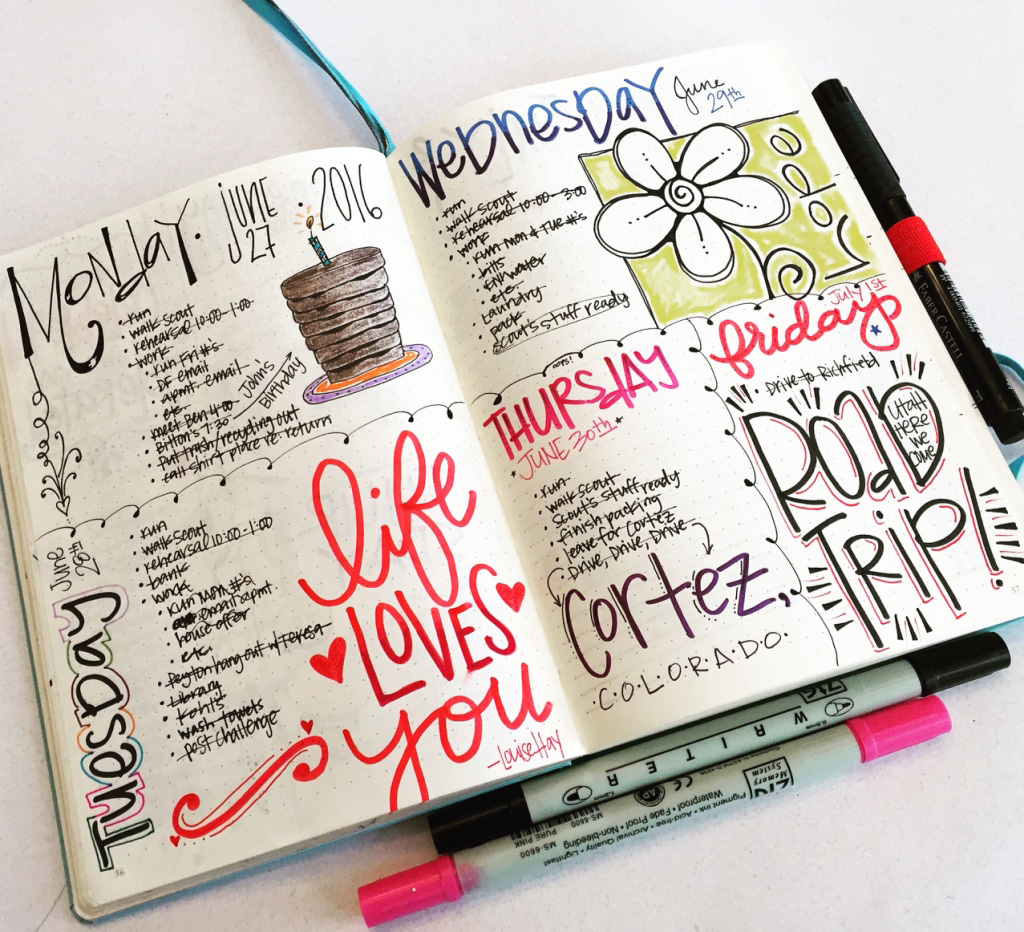 MONdAY. JUNE 27 . 2016
• run
• walk scout
• rehearsal 10:00-1:00
• work
• run Fri #'s
• DF email
• apmt. email
• etc.
• meet Ben 4:00
• Bitton's 7:30
• put trash/recycling out
• call shirt place re: return
John's
Birthday
Tuesday
June
28th
• run
• walk scout
• rehearsal 10:00-1:00
• bank
• work
• run Mon #'s
• email apmt.
• house offer
• etc.
• Peyton hang out w/Teresa
• Library
• Kohl's
• wash towels
• post challenge
life
LOVES
you
-Louise Hay
36
WeDnesDaY
June
29th
• run
• walk scout
• rehearsal 10:00-3:00
• work
• run Mon & Tue #'s
• bills
• ENT water
• etc.
• Laundry
• pack
• scout's stuff ready
oops!
THURSdAY
JUNE 30th
• run
• walk scout
• scout's stuff ready
• finish packing
• leave for Cortez
• Drive, Drive, Drive
Cortez,
• C•O•L•O•R•A•D•O•
July 1st
friday
• Drive to Richfield
ROaD
UTAH
Here
We
Come
TRiP!
37
FABER CASTELL
ZIG
WRITER
0.5mm
1.2mm
ZIG
Memory
System
CE
AP
Waterproof • Fade Proof • Non-bleeding
Pigment ink • Acid-free • Archival Quality • Lightfast
MS-6600 PURE PINK
MS-6600